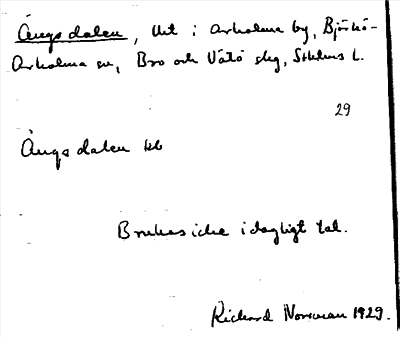 Ängsdalen, Utt i Arholma by, Björkö-
Arholma sn, Bro och Vätö skg, Sthlms l.
29
Ängsdalen
Brukas icke i dagligt tal.
Richard Norrman 1929.